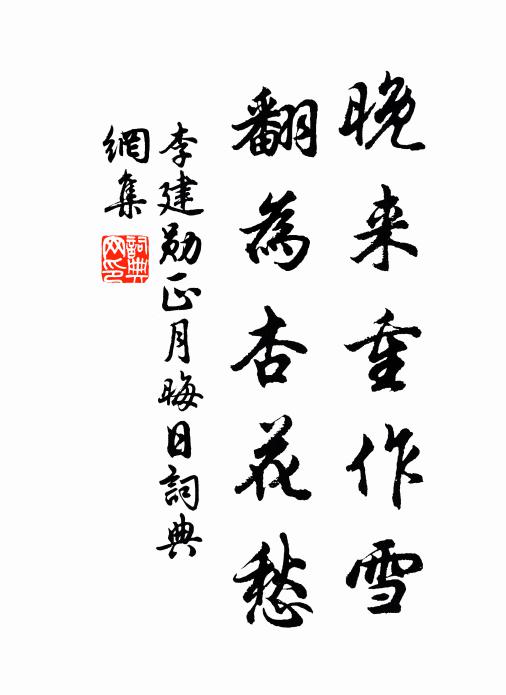 晚来重作雪
翻為杏花愁
李建勋正月晦日詞典
網集
詞典
网印